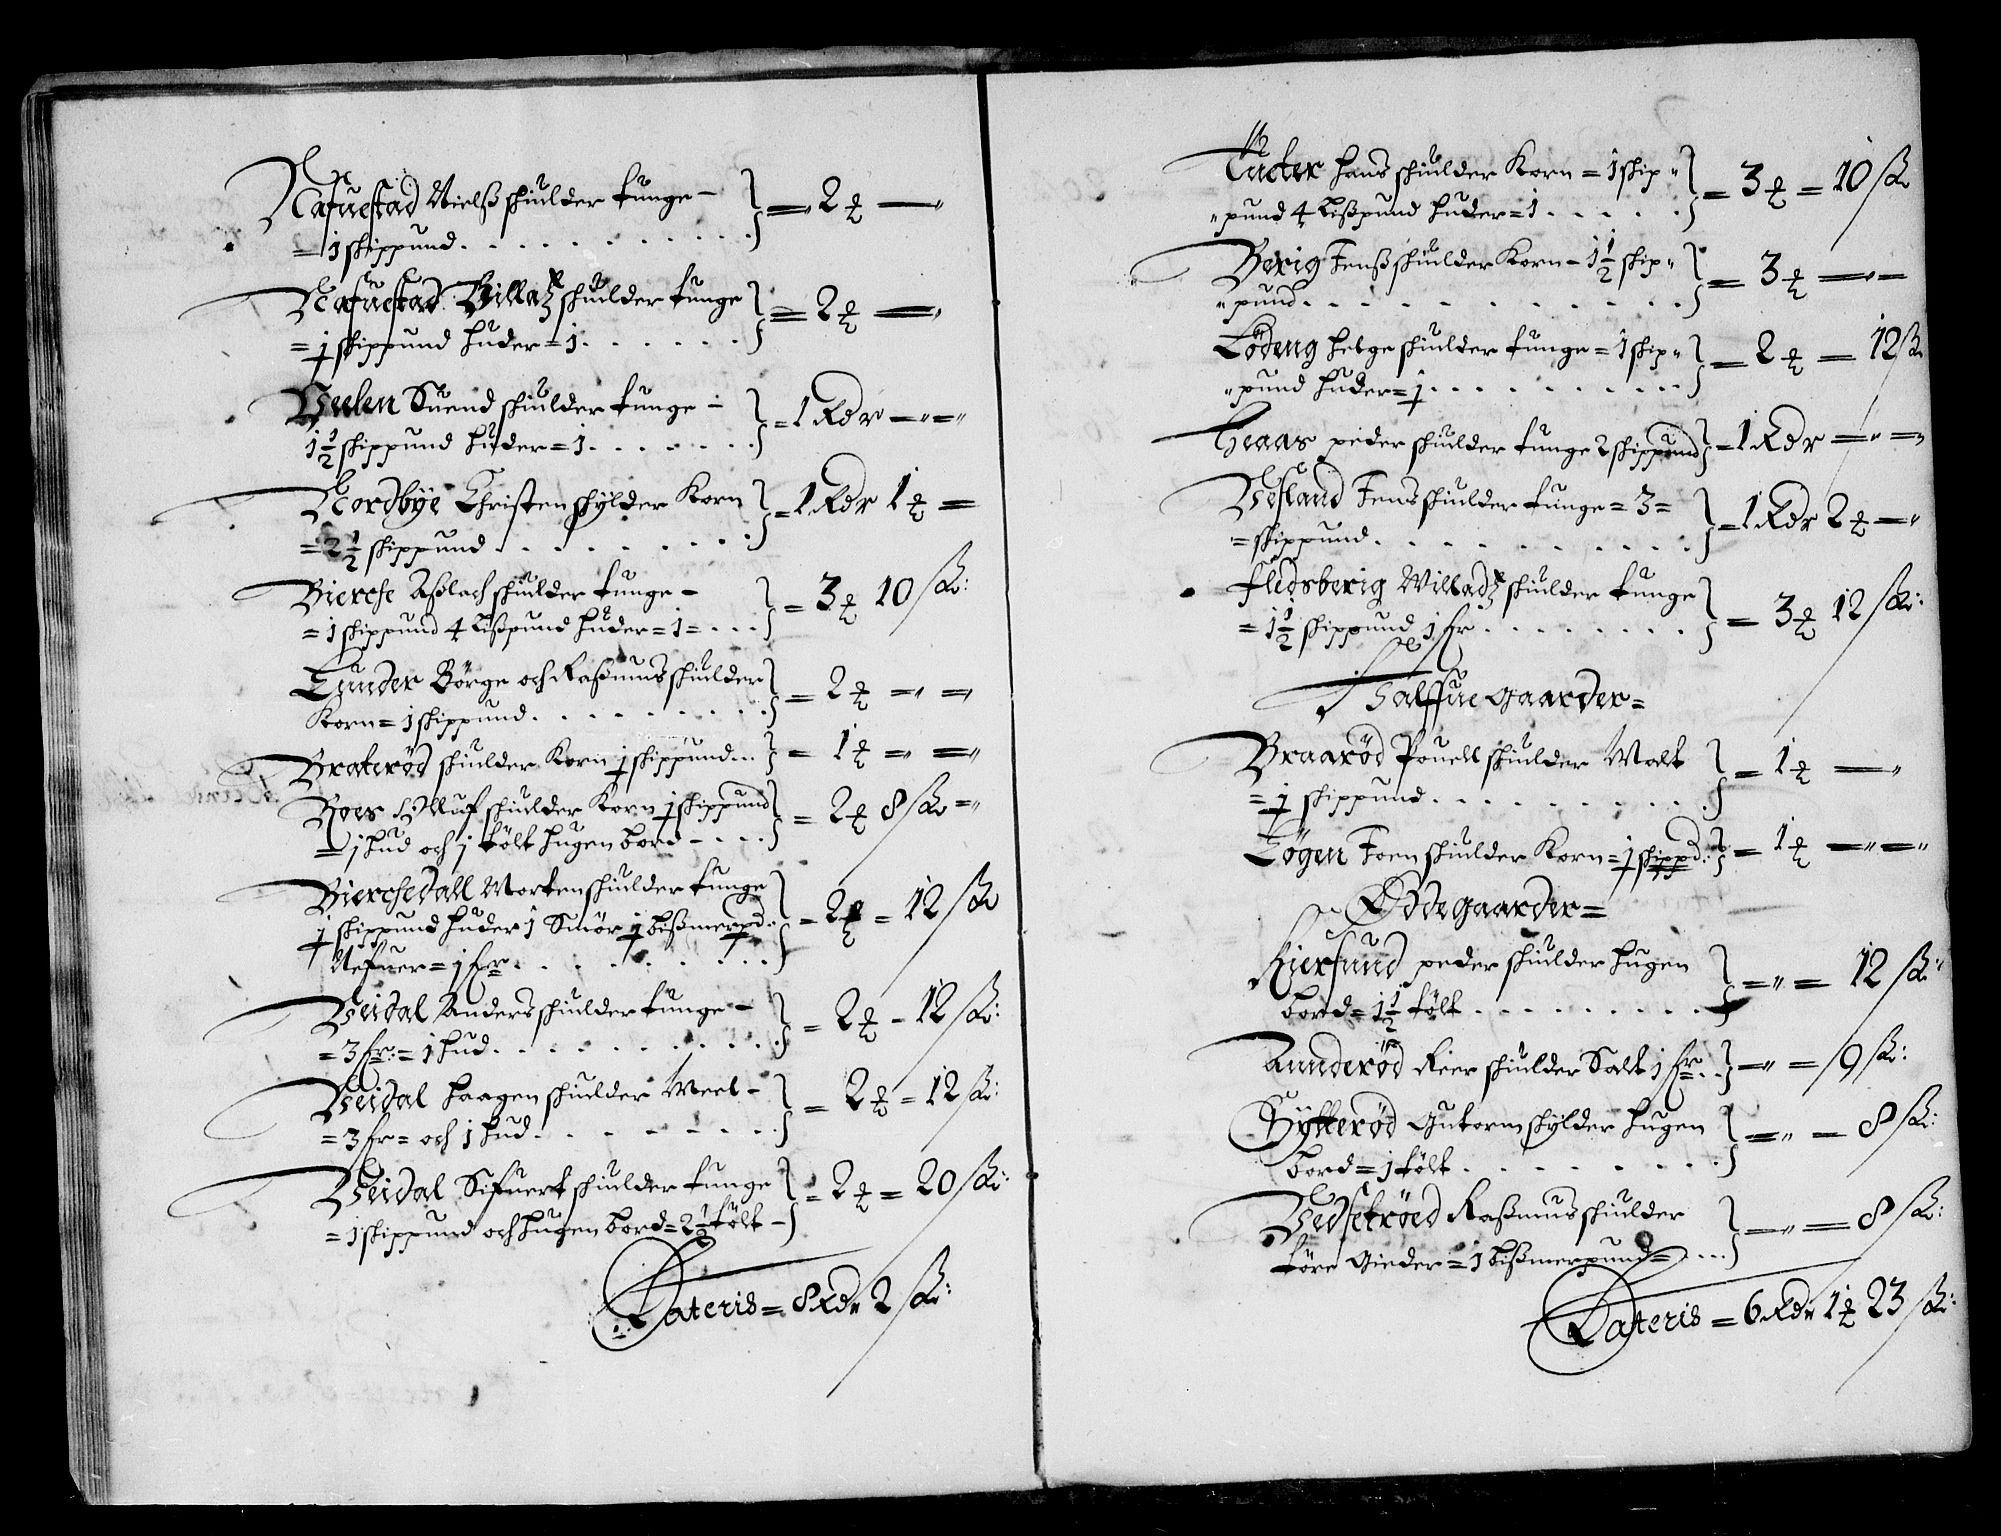 Nafuestad Nielß skiulder tunge –
= 1 skippund . . . . . } = 2 ₰ —
Nafuestad Villatz skiulder tunge
= ½ skippund huder = 1 . . . . } = 2 ₰ —
Veelen Suend skiulder tunge –
1½ skippund huder = 1 . . . . } = 1 Rdr — —
Nordbye Christen skylder Korn
= 2½ skippund . . . . } = 1 Rdr 1 ₰ =
Bierche Aßlach skiulder tunge –
= 1 skippund 4 Lißpund huder = 1 = . . . } = 3 ₰ 10 sk:
Lunder Börge och Raßmus skiulder
Korn = 1 skippund . . . . } = 2 ₰ = =
Braterød skiulder Korn ½ skippund . . . } = 1 ₰ = =
Roer Olluf skiulder Korn ½ skippund
= ½ hud och ½ tölt hugen bord – . . . } = 2 ₰ 8 sk =
Bierchedall Morten skiulder tunge
½ skippund huder 1 Smör ½ bißmerpd.
Nefuer = ½ fr . . . . } = 2 ₰ = 12 sk
Veidal Anders skiulder tunge –
= 3 fr: = 1 hud . . . . } = 2 ₰ – 12 sk:
Veidal Haagen skiulder Meel –
= 3 fr = och 1 hud . . . . } = 2 ₰ = 12 sk:
Veidal Sifuert skiulder tunge
= 1 skippund och hugen bord = 2½ tölt – } = 2 ₰ = 20 sk:
Lateris = 8 Rdr 2 sk:
Tueter Hans skiulder Korn = 1 skip"
"pund 4 Lißpund huder = 1 . . . . } = 3 ₰ = 10 sk
Berig Jenß skiulder Korn – 1½ skip"
"pund . . . . } = 3 ₰ — —
Lödeng Helge skiulder tunge = 1 skip"
"pund huder = ½ . . . . } = 2 ₰ = 12 sk
Haas peder skiulder tunge 2 skippund } = 1 Rdr = =
Vesland Jens skiulder tunge = 3 =
= skippund . . . . } = 1 Rdr 2 ₰ —
Flidsberig Willadtz skiulder tunge
= 1½ skippund ½ fr . . . . } = 3 ₰ 12 sk:
Halffue gaarder =
Braarød Pouell skiulder Malt
= ½ skippund . . . . } = 1 ₰ —
Løgen Joen skiulder Korn = ½ skippd: } = 1 ₰ — —
Ødegaarder =
Kiersund peder skiulder hugen
bord = 1½ tölt . . . . } = = 12 sk:
Aunderød Reier skiulder Salt ½ fr . . } — = 9 sk:
Hytterød Gutorm skylder hugen
bord = ½ tölt . . . . } = = 8 sk:
Vedsetröed Raßmus skiulder
töre Gieder = 1 bißmerpund = . . . } — = 8 sk:
Lateris = 6 Rdr 1 ₰ 23 sk: